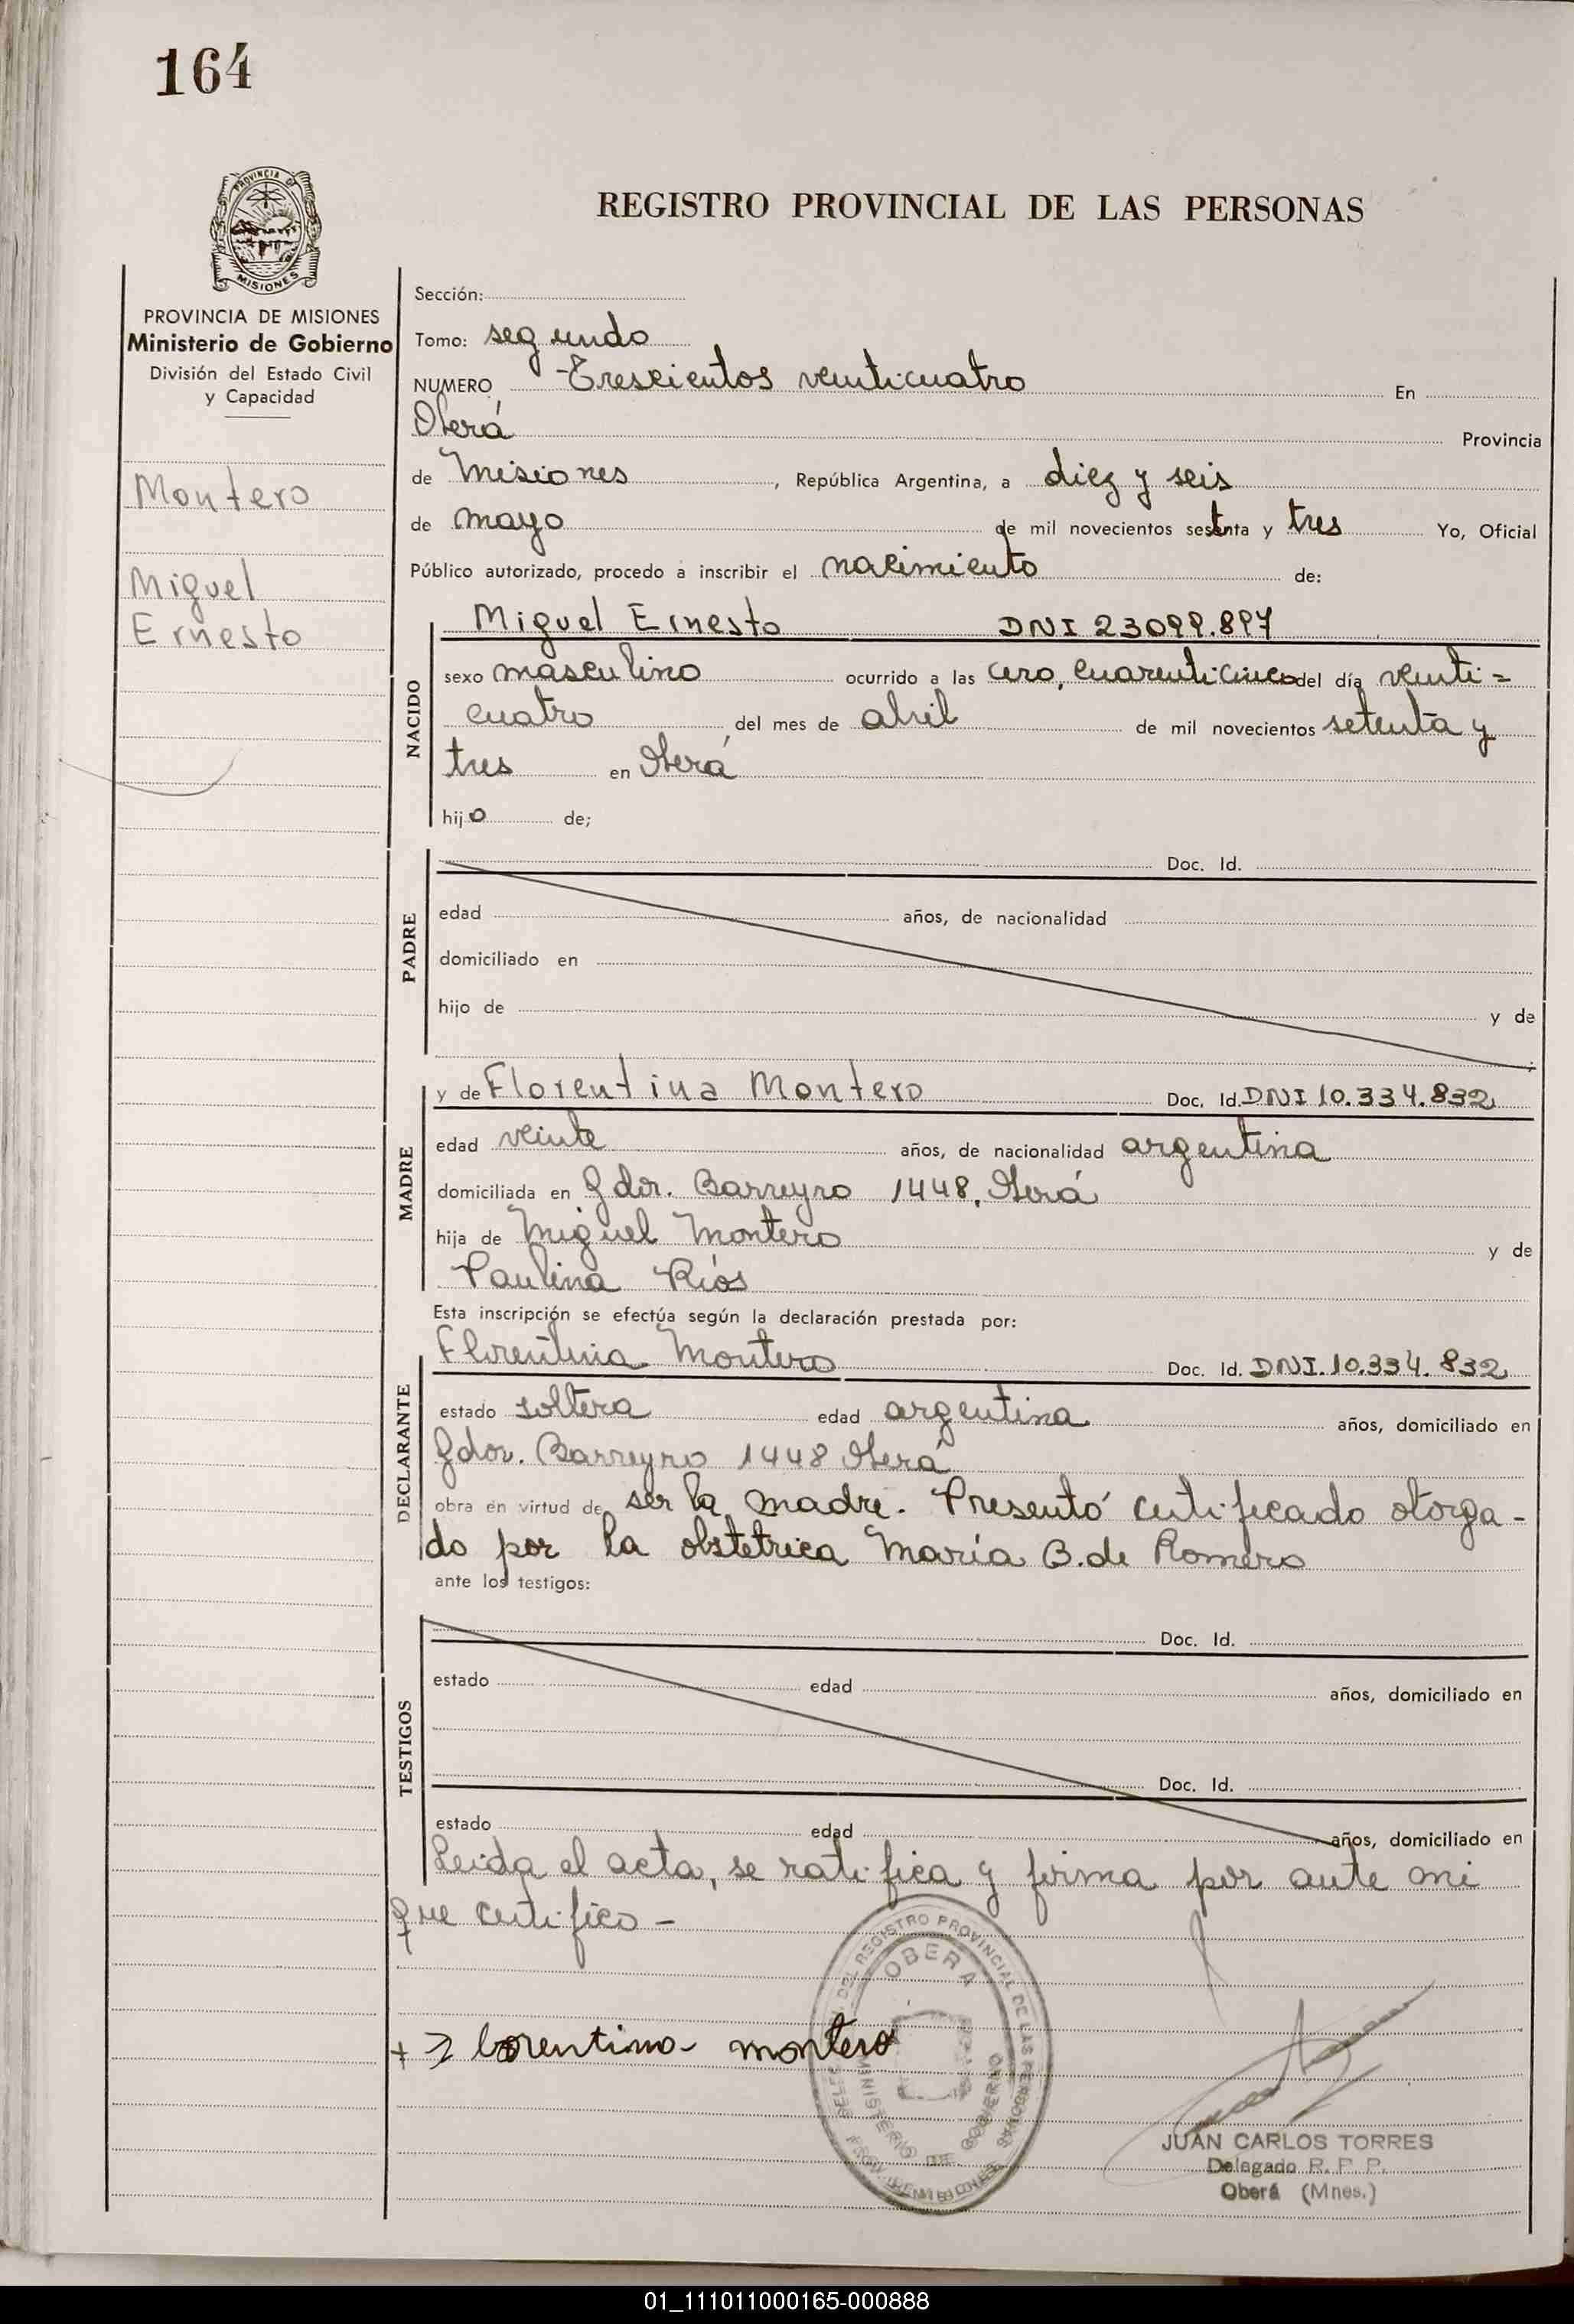 164
PROVINCIA DE
MISIONES
REGISTRO PROVINCIAL DE LAS PERSONAS
PROVINCIA DE MISIONES
Ministerio de Gobierno
División del Estado Civil
y Capacidad
Montero
Miguel
Ernesto
Sección:
Tomo: segundo
NUMERO Trescientos veinticuatro En
Oberá Provincia
de Misiones, República Argentina, a diez y seis
de mayo de mil novecientos setenta y tres Yo, Oficial
Público autorizado, procedo a inscribir el nacimiento de:
NACIDO
Miguel Ernesto DNI 23099.897
sexo masculino ocurrido a las cero, cuarenticinco del día veinti=
cuatro del mes de abril de mil novecientos setenta y
tres en Oberá
hijo de;
PADRE
Doc. Id.
edad años, de nacionalidad
domiciliado en
hijo de y de
MADRE
y de Florentina Montero Doc. Id. DNI 10.334.832
edad veinte años, de nacionalidad argentina
domiciliada en Gdor. Barreyro 1448, Oberá
hija de Miguel Montero y de
Paulina Ríos
Esta inscripción se efectúa según la declaración prestada por:
DECLARANTE
Florentina Montero Doc. Id. DNI. 10.334.832
estado soltera edad argentina años, domiciliado en
Gdor. Barreyro 1448 Oberá
obra en virtud de ser la madre. Presentó certificado otorga-
do por la obstetrica María B. de Romero
ante los testigos:
TESTIGOS
Doc. Id.
estado edad años, domiciliado en
Doc. Id.
estado edad años, domiciliado en
Leida el acta, se ratifica y firma por ante mi
que certifico -
DEL REGISTRO PROVINCIAL DE LAS PERSONAS
OBERA
MINISTERIO DE GOBIERNO
montero
JUAN CARLOS TORRES
Delegado R. P. P.
Oberá (Mnes.)
01_111011000165-000888